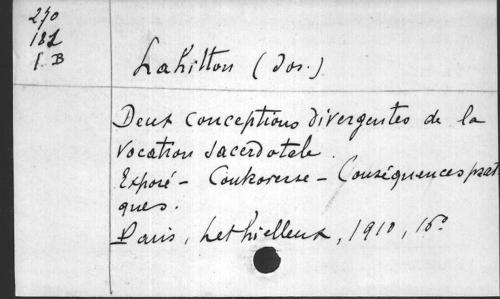 270
182
I. B
Lahitton (Jos.)
Deux conceptions divergentes de la
vocation sacerdotale.
Exposé - Controverse - Conséquences prati
ques.
Paris, Lethielleux, 1910, 16º